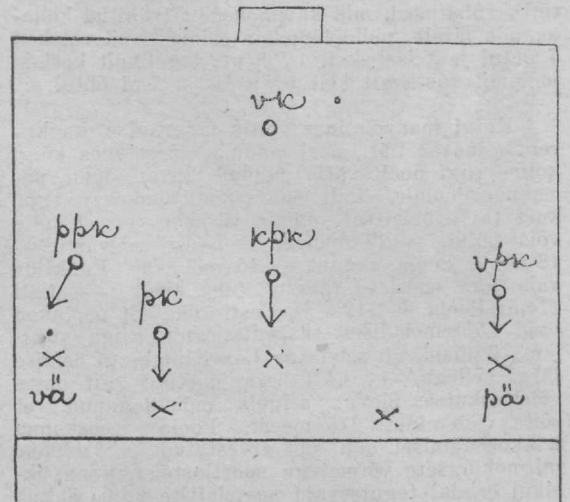 vk
ppk
kpk
pk
vpk
vä
pä